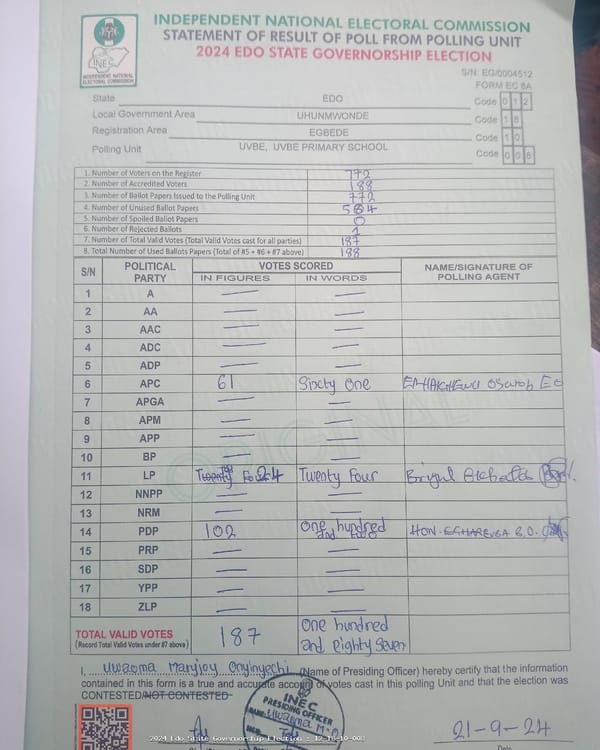 INDEPENDENT NATIONAL ELECTORAL COMMISSION
STATEMENT OF RESULT OF POLL FROM POLLING UNIT
2024 EDO STATE GOVERNORSHIP ELECTION
INEC
INDEPENDENT NATIONAL
ELECTORAL COMMISSION
S/N: EG/0004512
FORM EC 8A
State EDO Code 0 1 2
Local Government Area UHUNMWONDE Code 1 8
Registration Area EGBEDE Code 1 0
Polling Unit UVBE, UVBE PRIMARY SCHOOL Code 0 0 8
1. Number of Voters on the Register 772
2. Number of Accredited Voters 188
3. Number of Ballot Papers Issued to the Polling Unit 772
4. Number of Unused Ballot Papers 584
5. Number of Spoiled Ballot Papers 0
6. Number of Rejected Ballots 1
7. Number of Total Valid Votes (Total Valid Votes cast for all parties) 187
8. Total Number of Used Ballots Papers (Total of #5 + #6 + #7 above) 188
S/N POLITICAL PARTY VOTES SCORED NAME/SIGNATURE OF POLLING AGENT
IN FIGURES IN WORDS
1 A — —
2 AA — —
3 AAC — —
4 ADC — —
5 ADP — —
6 APC 61 Sixty One
7 APGA — —
8 APM — —
9 APP — —
10 BP — —
11 LP Twenty 24 Twenty Four
12 NNPP — —
13 NRM — —
14 PDP 102 One hundred and two HON. EGHAREVBA
15 PRP — —
16 SDP — —
17 YPP — —
18 ZLP — —
ORIGINAL
TOTAL VALID VOTES 187 One hundred
(Record Total Valid Votes under #7 above) and eighty Seven
I, Uwaoma Maryjoy Onyinyechi (Name of Presiding Officer) hereby certify that the information
contained in this form is a true and accurate account of votes cast in this polling Unit and that the election was
CONTESTED/NOT CONTESTED
INEC
PRESIDING OFFICER
NAME: Uwaoma M.
21-9-24
Date
2024 Edo State Governorship Election - 12-18-10-008